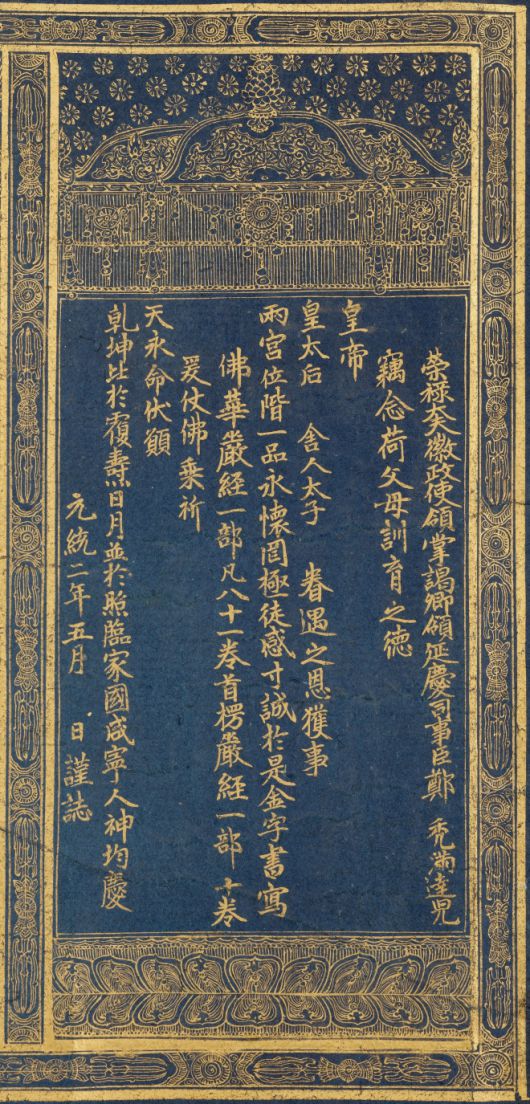 榮祿大夫徽政使領掌謁卿領延慶司事臣鄭 禿滿達兒
竊念荷父母訓育之德
皇帝
皇太后 舍人太子 眷遇之恩獲事
兩宮位階一品永懷罔極徒感寸誠於是金字書寫
佛華嚴經一部凡八十一卷首楞嚴經一部十卷
爰仗佛乘祈
天永命伏願
乾坤比於覆壽日月並於照臨家國咸寧人神均慶
元統二年五月 日謹誌